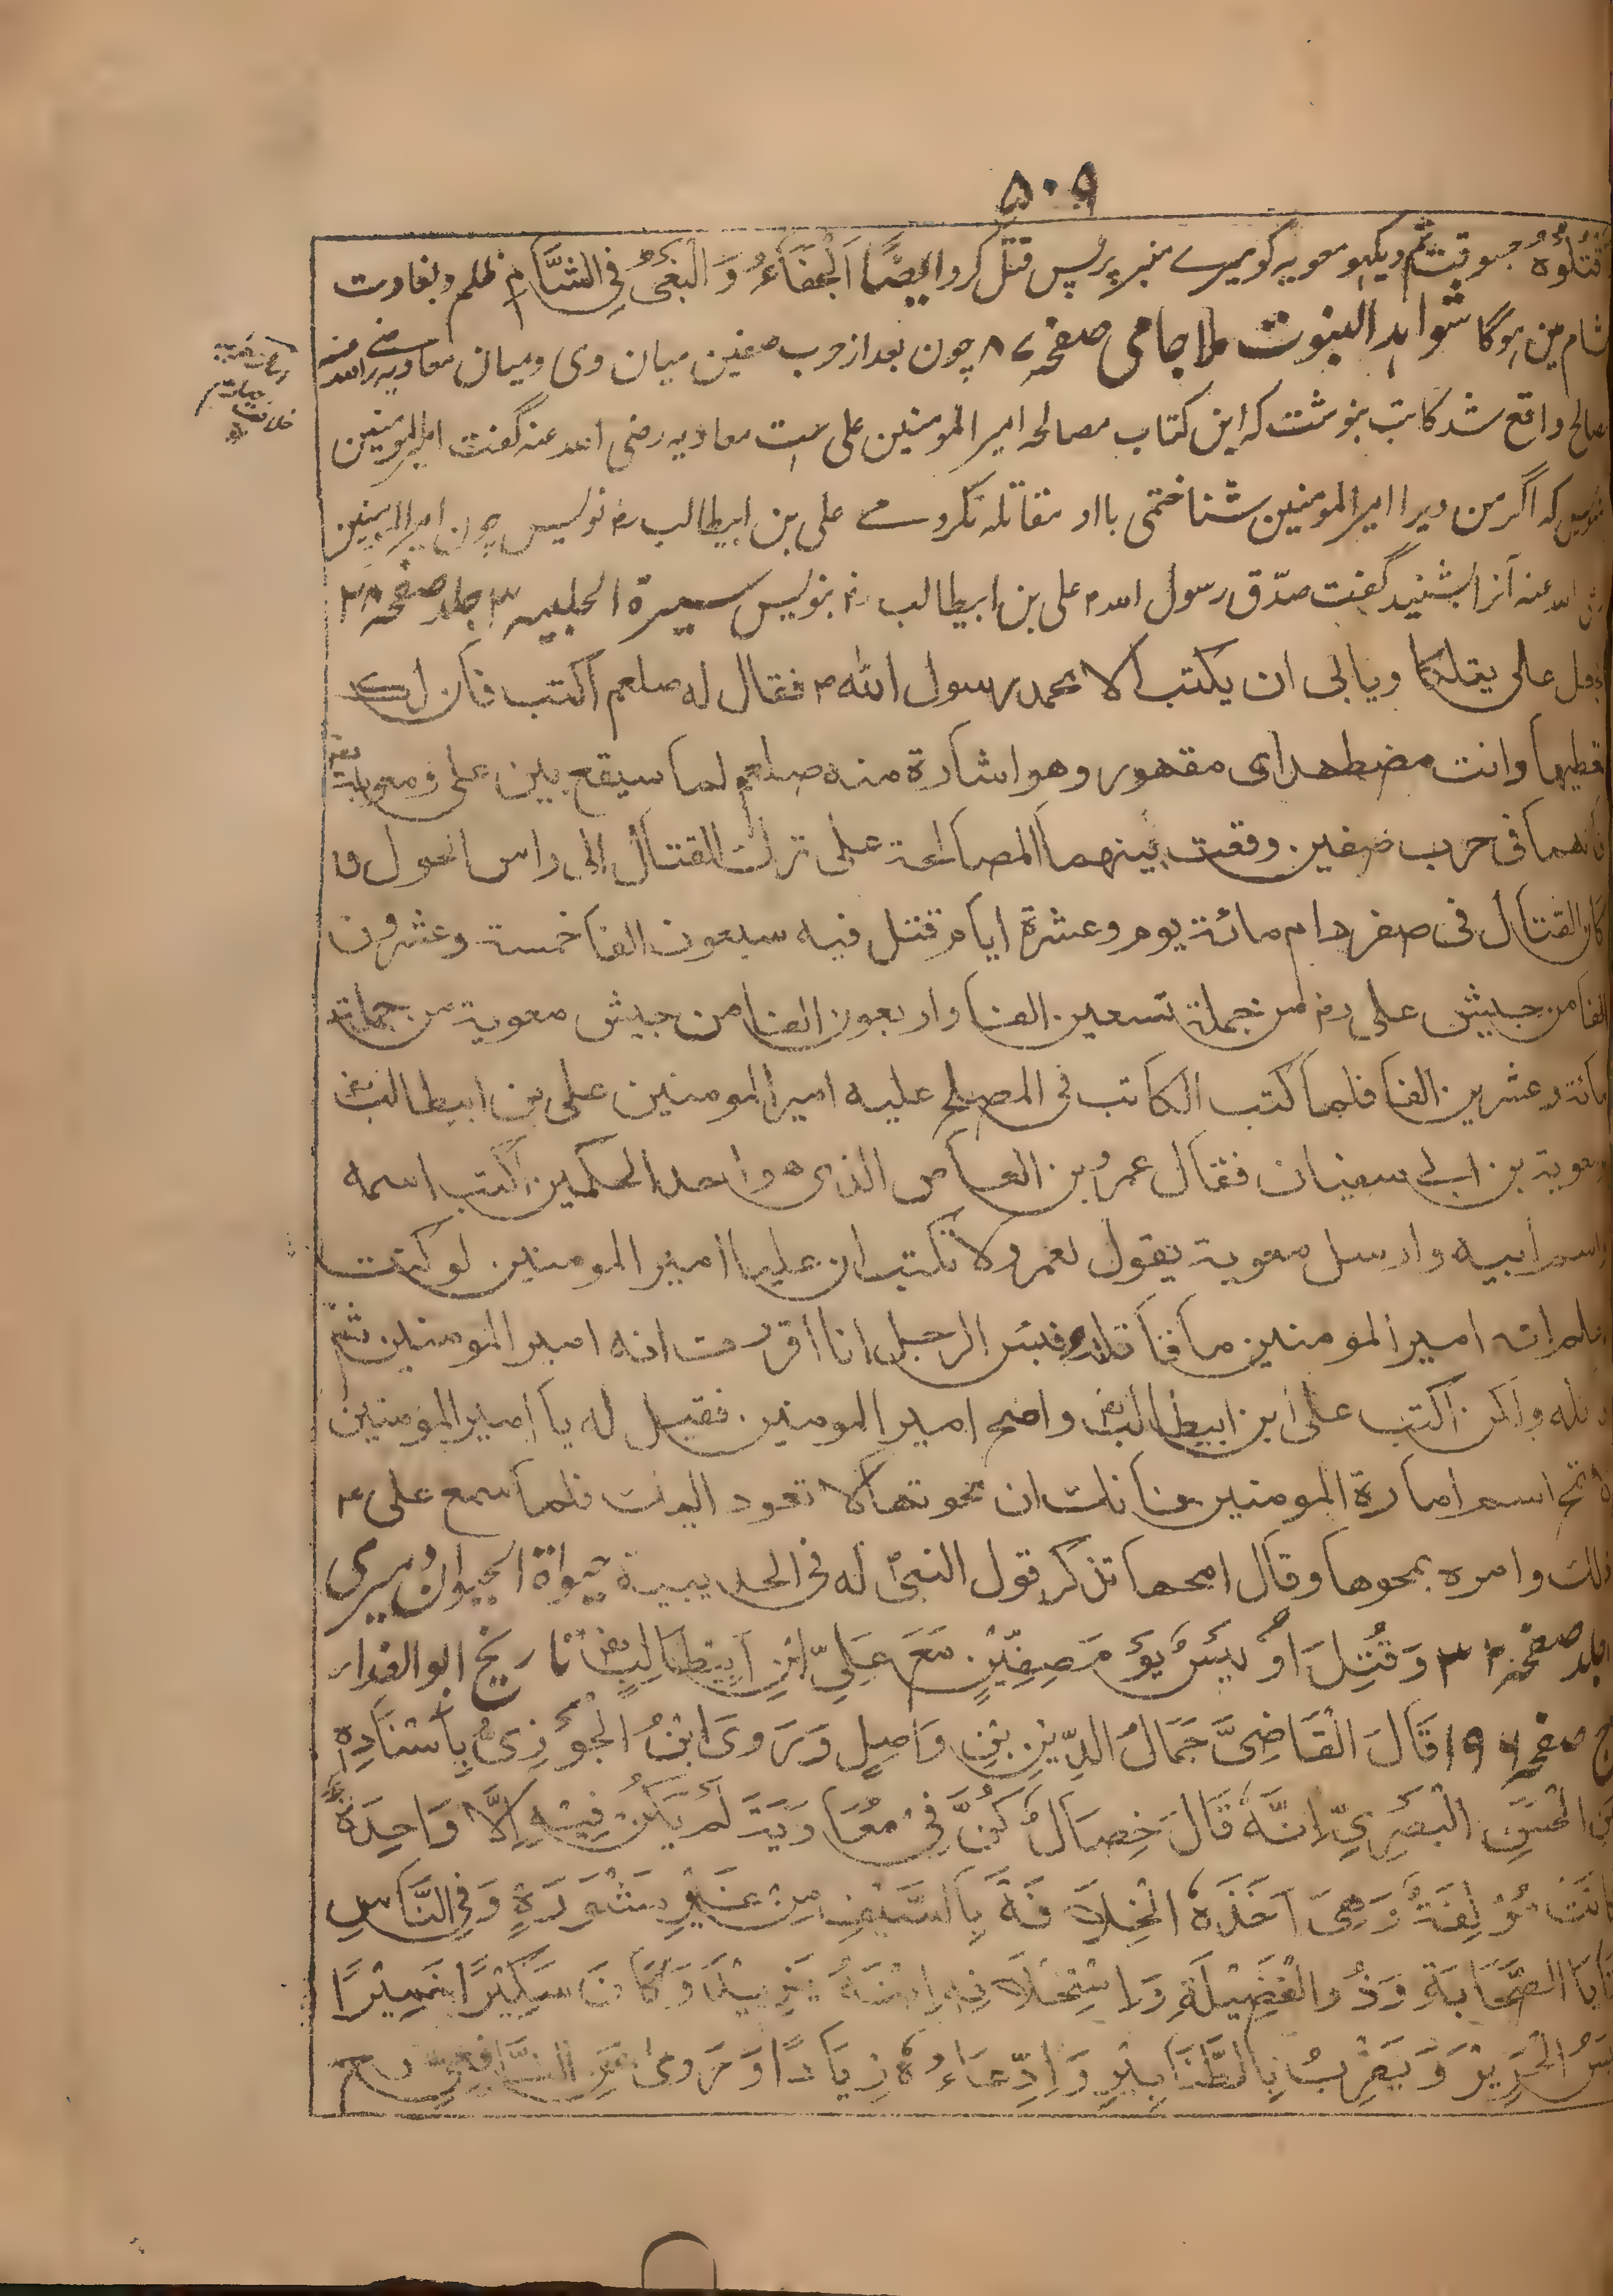 ۵۰۹
فَاقْتُلُوْهُ جسوقت تم دیکہو معویہ کو میرے منبر پر پس قتل کرو ایضًا اَلْجَفَآءُ وَالْبَغْیُ فِی الشَّامِ ظلم و بغاوت
شام مین ہوگا شواہد النبوت ملا جامی صفحہ ۸۷ چون بعد از حرب صفین میان وی ومیان معاویہ رضی اللہ عنہ
صالح واقع شد کاتب بنوشت کہ این کتاب مصالحہ امیر المومنین علی ست معاویہ رضی اللہ عنہ گفت امیر المومنین
منویس کہ اگر من ویرا امیر المومنین شناختمی با او مقاتلہ نکردمے علی بن ابیطالب رض نویس چون امیر المومنین
رضی اللہ عنہ آنرا بشنید گفت صدّق رسول اللہ م علی بن ابیطالب رض بنویس سیرۃ الحلبیہ ۳ جلد صفحہ
فجعل علی یتلکا ویابی ان یکتب الا محمد رسول اللہ م فقال له صلعم اکتب فان لک
تعطیها وانت مضطهد ای مقهور وهو اشارة منه صلعم لما سیقع بین علی ومعویة
فانهما فی حرب صفین وقعت بینهما المصالحة علی ترک القتال الی راس الحول و
کان القتال فی صفر دام مائة یوم وعشرة ایام قتل فیه سبعون الفا خمسة وعشرون
الفا من جیش علی رض من جملة تسعین الفا واربعون الفا من جیش معویة من جملة
مائة وعشرین الفا فلما کتب الکاتب فی الصلح علیه امیر المومنین علی بن ابیطالب
ومعویة بن ابی سفیان فقال عمرو بن العاص الذی هو احد الحکمین اکتب اسمه
واسم ابیه وارسل معویة یقول لعمرو لا تکتب ان علیا امیر المومنین لو کنت
اعلم انه امیر المومنین ما قاتلته فبئس الرجل انا اقررت انه امیر المومنین ثم
اقاتله ولکن اکتب علی ابن ابیطالب وامح امیر المومنین فقیل له یا امیر المومنین
لا تمح اسم امارة المومنین فانک ان محوتها لا تعود الیک فلما سمع علی
ذلک وامره بمحوها وقال امحها تذکر قول النبی له فی الحدیبیة حیواة الحیوان دمیری
جلد صفحہ وَقُتِلَ اُوَیْسُ یَوْمَ صِفِّیْنِ مَعَ عَلِیّ ابْنِ اَبِیْطَالِبٍ تاریخ ابو الفدا
صفحہ ۱۹۶ قَالَ الْقَاضِیَّ جَمَالُ الدِّیْنِ بْنِ وَاصِلٍ وَرَوَی ابْنُ الْجَوْزِیْ بِاَسْنَادِہٖ
عَنِ الْحَسَنِ الْبَصَرِیِّ اِنَّهٗ قَالَ خِصَالٌ کُنَّ فِیْ مُعَاوِیَةَ لَمْ یَکُنْ فِیْهِ اِلَّا وَاحِدَةٌ
کَانَتْ مُوْلِفَةٌ وَهِیَ اَخَذَهُ الْخِلَافَةَ بِالسَّیْفِ مِنْ غَیْرِ مَشْوَرَةٍ وَفِی النَّاسِ
بَقَایَا الصَّحَابَةِ وَذُو الْفَضِیْلَةِ وَاسْتِخْلَافِهِ ابْنَهٗ یَزِیْدَ وَکَانَ سَکِیْرًا خَمِیْرًا
یَلْبَسُ الْحَرِیْرَ وَیَضْرِبُ بِالطَّنَابِیْرِ وَادِّعَاءُهٗ زِیَادًا وَرَوٰی عَنِ الشَّافِعِیْ